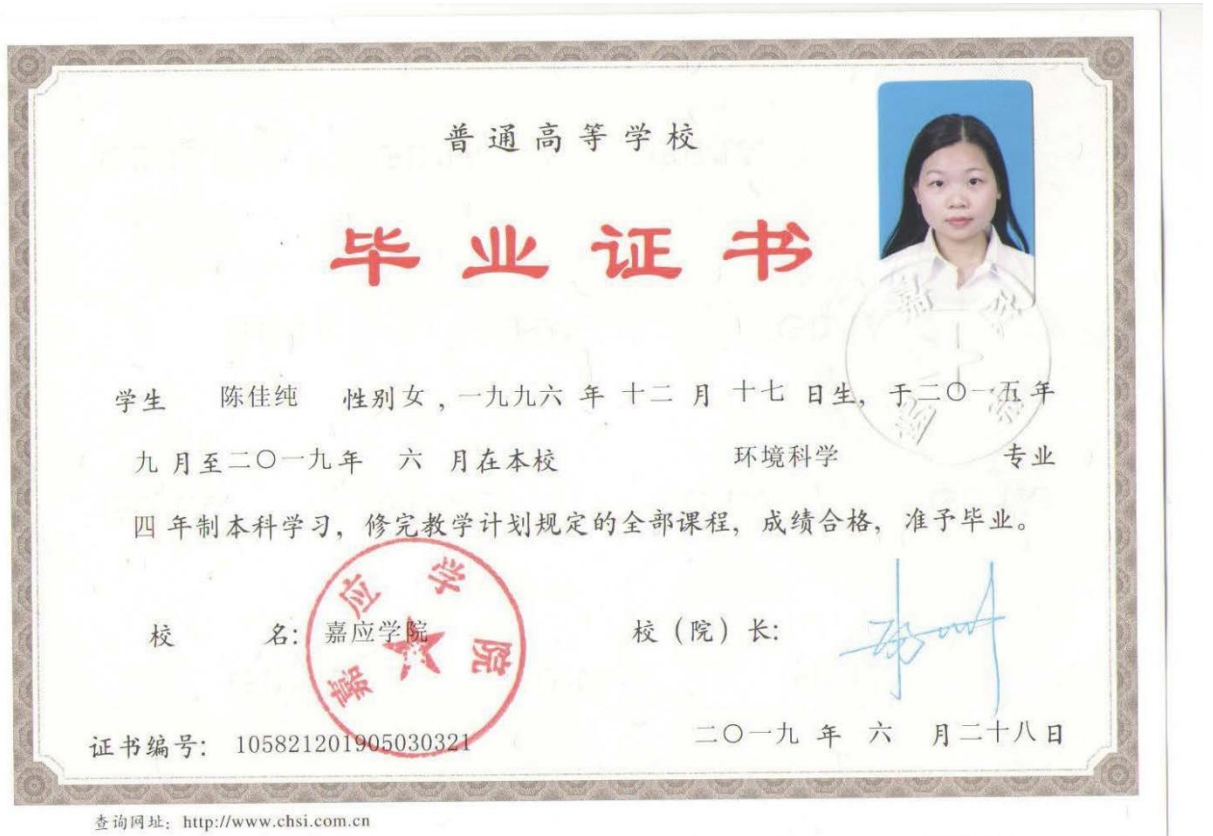 普通高等学校
毕业证书
学生 陈佳纯 性别女，一九九六 年 十二 月 十七 日生，于二〇一五年
九 月至二〇一九年 六 月在本校 环境科学 专业
四 年制本科学习，修完教学计划规定的全部课程，成绩合格，准予毕业。
校 名：嘉应学院 校（院）长：
嘉应学院
证书编号：105821201905030321 二〇一九 年 六 月二十八日
查询网址：http://www.chsi.com.cn